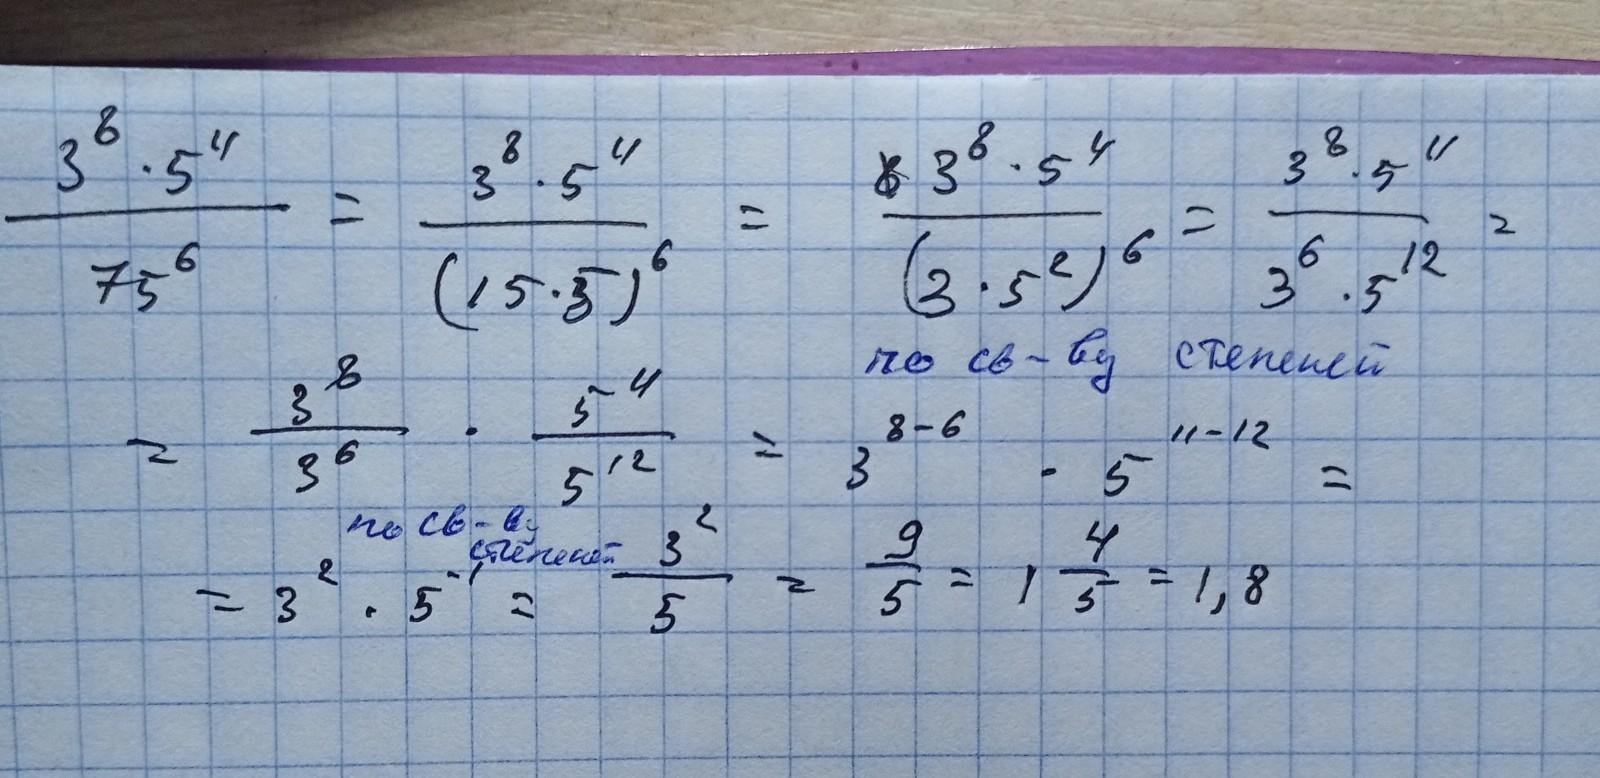 3⁸ · 5¹¹ / 75⁶ = 3⁸ · 5¹¹ / (15 · 5)⁶ = 3⁸ · 5¹¹ / (3 · 5²)⁶ = 3⁸ · 5¹¹ / 3⁶ · 5¹² =
по св-ву степеней
= 3⁸ / 3⁶ · 5¹¹ / 5¹² = 3⁸⁻⁶ · 5¹¹⁻¹² =
по св-ву
степеней
= 3² · 5⁻¹ = 3² / 5 = 9/5 = 1 4/5 = 1,8